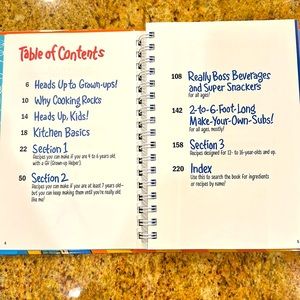 Table of Contents
6 Heads Up to Grown-ups!
10 Why Cooking Rocks
14 Heads Up, Kids!
18 Kitchen Basics
22 Section 1
Recipes you can make if you are 4 to 6 years old
with a GH (Grown-up Helper).
50 Section 2
Recipes you can make if you are at least 7 years old—
but you can keep making them until you're really old
like me!
4
108 Really Boss Beverages
and Super Snackers
for all ages!
142 2-to-6-Foot-Long
Make-Your-Own-Subs!
for all ages, mostly!
158 Section 3
Recipes designed for 12- to 16-year-olds and up.
220 Index
Use this to search the book for ingredients
or recipes by name!
5